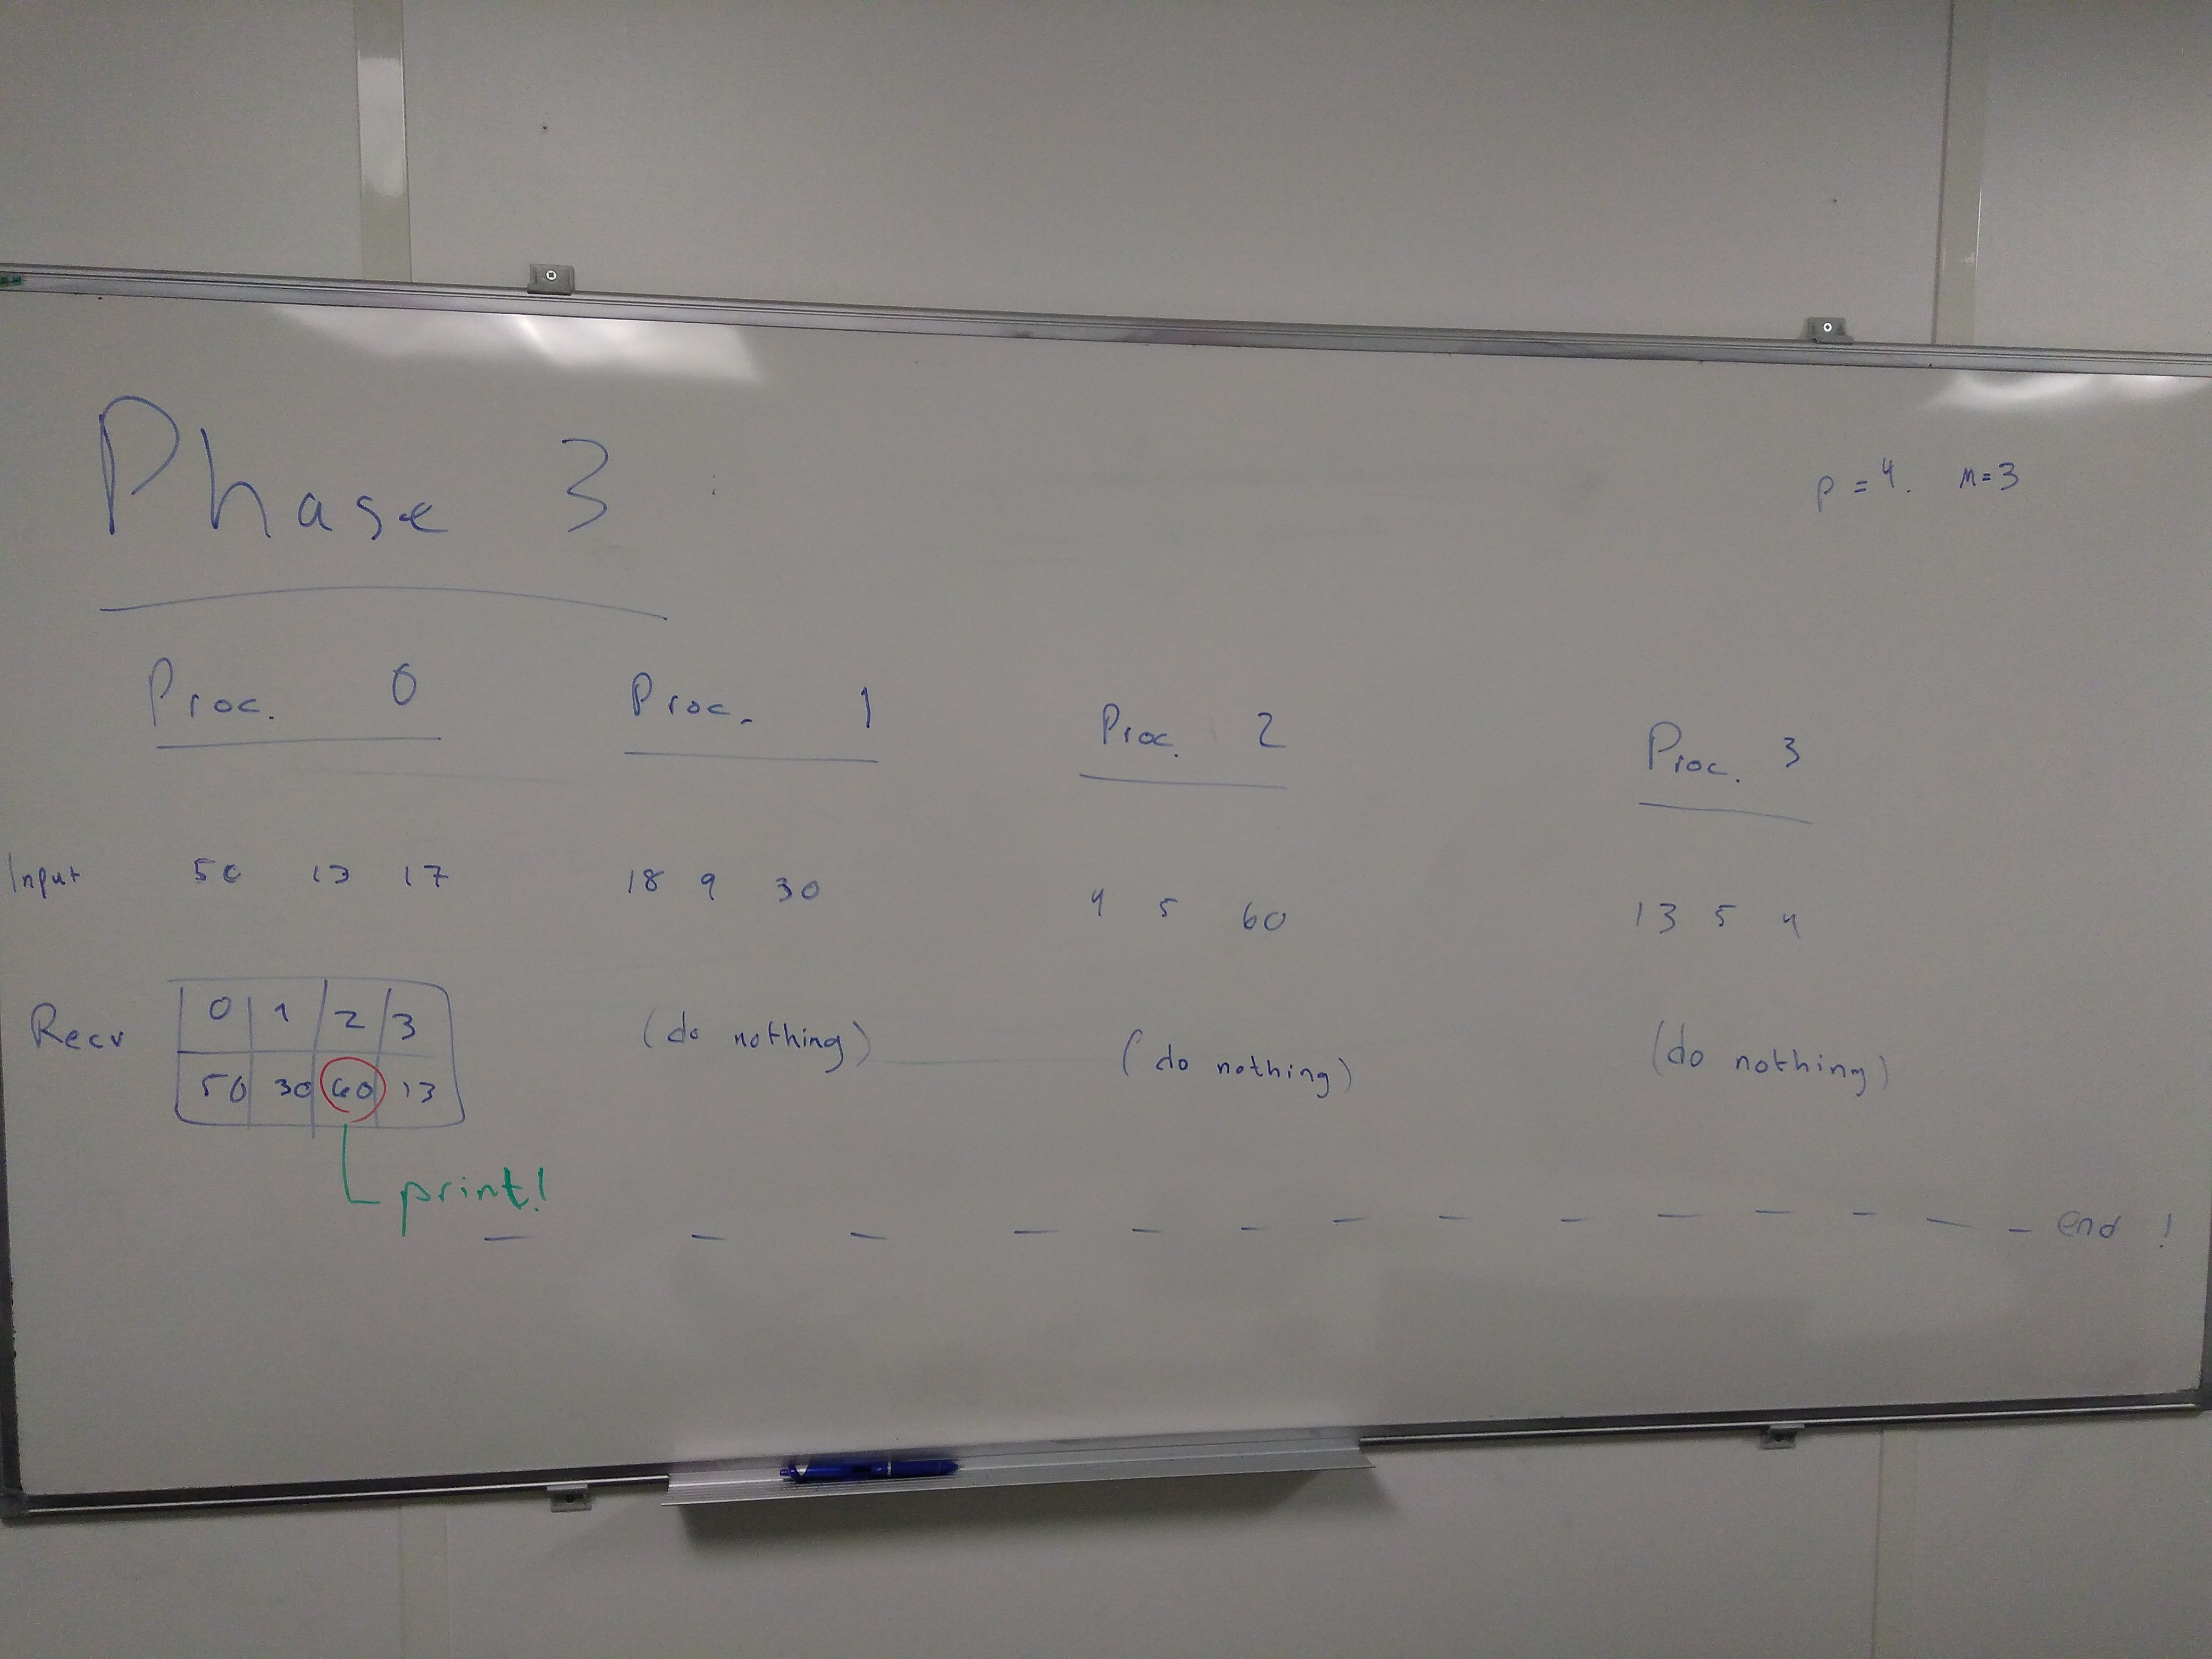 Phase 3 :
p = 4. n=3
Proc. 0 Proc. 1 Proc. 2 Proc. 3
Input 50 13 17 18 9 30 4 5 60 13 5 4
0 1 2 3
Recv (do nothing) (do nothing) (do nothing)
50 30 60 13
print!
end !